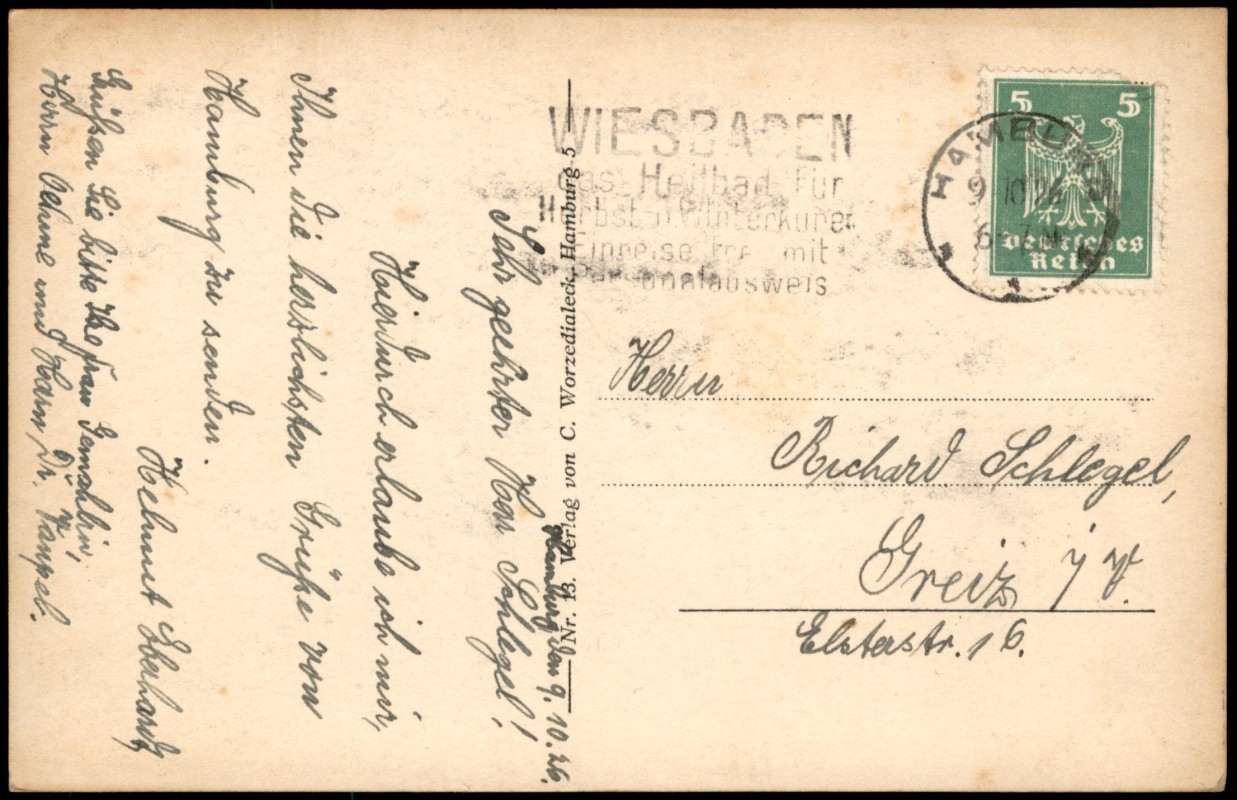 Hamburg, den 9. 10. 26.
Sehr geehrter Herr Schlegel!
Hierdurch erlaube ich mir,
Ihnen die herzlichsten Grüße von
Hamburg zu senden.
Helmut Eberhardt
Grüßen Sie bitte Ihre Frau Gemahlin,
Herrn Oehme und Herrn Dr. Vampel.
Nr. 13. Verlag von C. Worzedialeck, Hamburg 5
WIESBADEN
das Heilbad für
Herbst u. Winterkuren
Einreise frei mit
Personalausweis
HAMBURG
9 10 26
6-7 N
1
5 5
Deutsches
Reich
Herrn
Richard Schlegel,
Greiz i/V.
Elsterstr. 16.